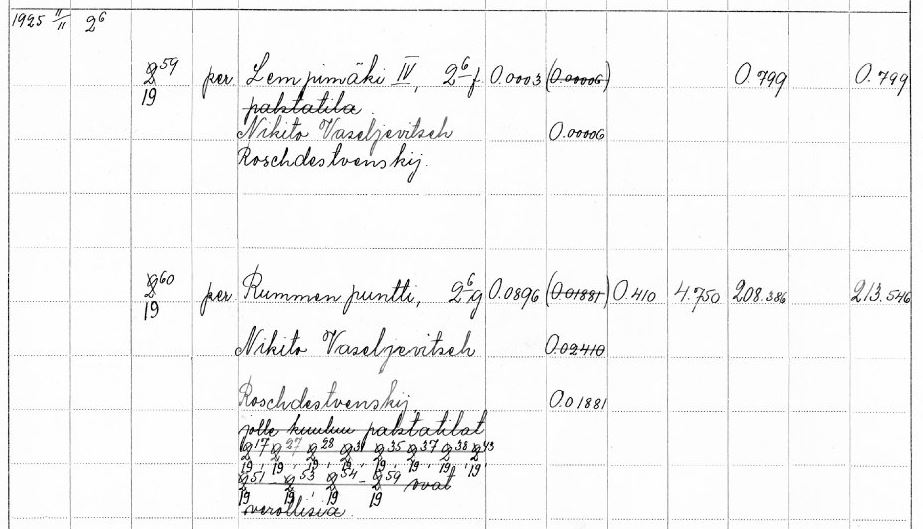 1925 11/11 2⁶
2⁵⁹ per. Lempimäki IV, 2⁶f 0.0003 (0.00006) 0.799 0.799
19 palstatila
Nikito Vaseljevitsch 0.00006
Roschdestvenskij.
2⁶⁰ per. Rummen puntti, 2⁶g 0.0896 (0.01881) 0.410 4.750 208.386 213.546
19
Nikito Vaseljevitsch 0.02410
Roschdestvenskij, 0.01881
jolle kuuluu palstatilat
2¹⁷ 2²⁷ 2²⁸ 2³¹ 2³⁵ 2³⁷ 2³⁸ 2⁴³
19, 19, 19, 19, 19, 19, 19, 19,
2⁵¹ - 2⁵³ 2⁵⁴ - 2⁵⁹ ovat
19 19, 19 19
verollisia.